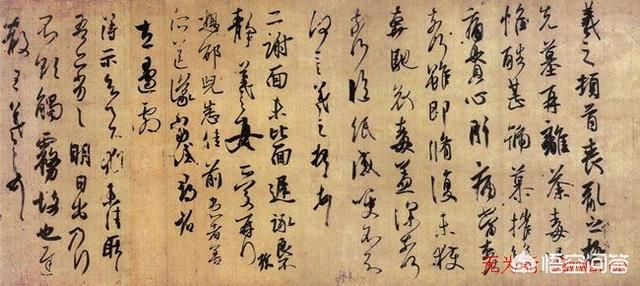 羲之頓首喪亂之極
先墓再離荼毒追
惟酷甚號慕摧絕
痛貫心肝痛當奈何
奈何雖即脩復未獲
奔馳哀毒益深奈何
奈何臨紙感哽不知
何言羲之頓首頓首
二謝面未比面遲詠良不
靜羲之女愛再拜
想邰兒悉佳前患者善
所送議當試尋省
左邊劇
得示知足下猶未佳耿耿
吾亦劣劣明日出乃行
不欲觸霧故也遲
散王羲之頓首
悟空问答